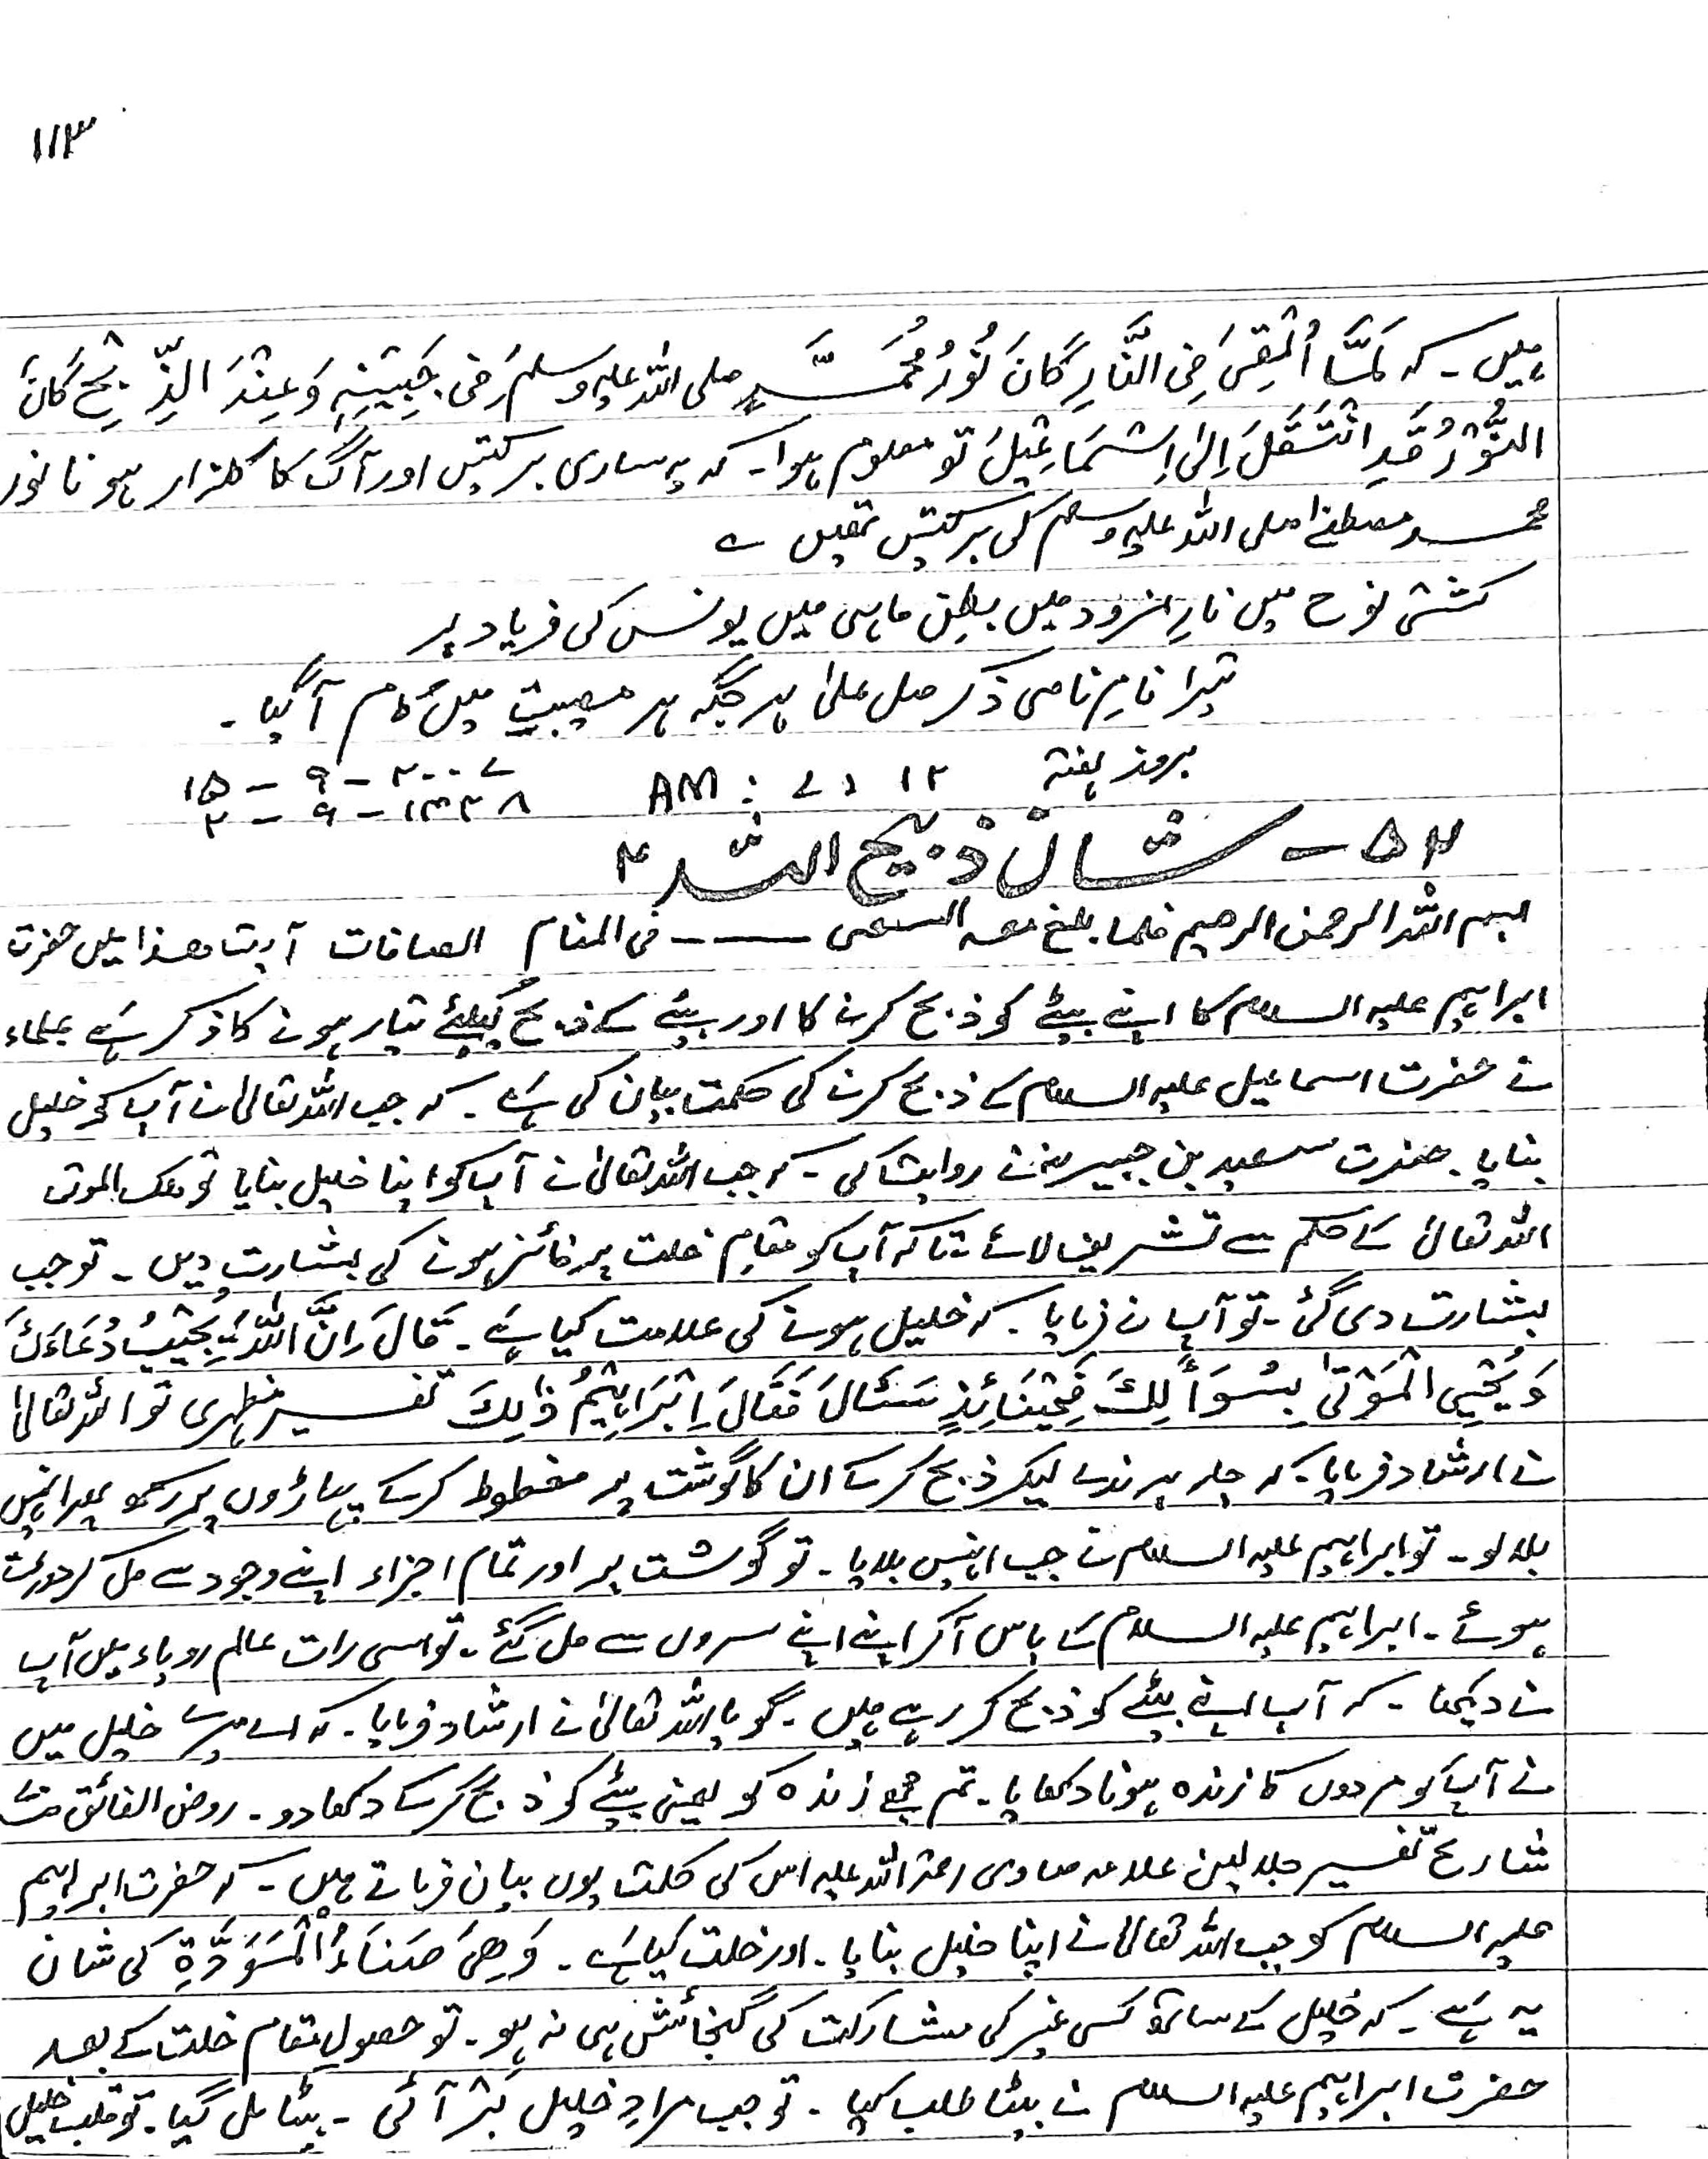 ۱۱۳
ہیں۔ کہ لَمَّا اُلْقِیَ فِی النَّارِ کَانَ نُوْرُ مُحَمَّدٍ صلی اللہ علیہ وسلم فِی جَبِیْنِہٖ وَعِنْدَ الذِّبْحِ کَانَ
النُّوْرُ قَدِ انْتَقَلَ اِلیٰ اِسْمَاعِیْلَ تو معلوم ہوا۔ کہ یہ ساری برکتیں اور آگ کا گلزار ہونا نور
محمد مصطفےٰ صلی اللہ علیہ وسلم کی برکتیں تھیں ؎
کشتی نوح میں نارِ نمرود میں بطنِ ماہی میں یونس کی فریاد پر
تیرا نامِ نامی ذکر صل علیٰ ہر جگہ ہر مصیبت میں کام آگیا۔
بروز ہفتہ ۱۲ د ۷ : AM ۲۰۰۷ – ۹ – ۱۵
۱۴۲۸ – ۹ – ۲
۵۲ – شان ذبیح اللہ ۲
بسم اللہ الرحمن الرحیم فلما بلغ معہ السعی ــــــ فی المنام الصافات آیت ھذا میں حضرت
ابراہیم علیہ السلام کا اپنے بیٹے کو ذبح کرنے کا اور بیٹے کے ذبح کیلئے تیار ہونے کا ذکر ہے علماء
نے حضرت اسماعیل علیہ السلام کے ذبح کرنے کی حکمت بیان کی ہے۔ کہ جب اللہ تعالیٰ نے آپ کو خلیل
بنایا۔ حضرت سعید بن جبیر نے روایت کی۔ کہ جب اللہ تعالیٰ نے آپ کو اپنا خلیل بنایا تو ملک الموت
اللہ تعالیٰ کے حکم سے تشریف لائے تاکہ آپ کو مقامِ خلت پر فائز ہونے کی بشارت دیں۔ تو جب
بشارت دی گئی۔ تو آپ نے فرمایا۔ کہ خلیل ہونے کی علامت کیا ہے۔ قَالَ اِنَّ اللّٰہَ یُجِیْبُ دُعَاءَکَ
وَیُحْیِی الْمَوْتیٰ بِسُوَالِکَ فَحِیْنَئِذٍ سَئَالَ فَقَالَ اِبْرَاہِیْمُ ذٰلِکَ تفسیر مظہری تو اللہ تعالیٰ
نے ارشاد فرمایا۔ کہ چار پرندے لیکر ذبح کرکے ان کا گوشت پر مخلوط کرکے پہاڑوں پر رکھو پھر انہیں
بلالو۔ تو ابراہیم علیہ السلام نے جب انہیں بلایا۔ تو گوشت پر اور تمام اجزاء اپنے وجود سے مل کر دوڑتے
ہوئے۔ ابراہیم علیہ السلام کے پاس آکر اپنے اپنے سروں سے مل گئے۔ تو اسی رات عالم رویاء میں آپ
نے دیکھا۔ کہ آپ اپنے بیٹے کو ذبح کر رہے ہیں۔ گویا اللہ تعالیٰ نے ارشاد فرمایا۔ کہ اے میرے خلیل میں
نے آپ کو مردوں کا زندہ ہونا دکھایا۔ تم مجھے زندہ کو یعنی بیٹے کو ذبح کرکے دکھا دو۔ روض الفائق
شارحِ تفسیر جلالین علامہ صاوی رحمۃ اللہ علیہ اس کی حکمت یوں بیان فرماتے ہیں۔ کہ حضرت ابراہیم
علیہ السلام کو جب اللہ تعالیٰ نے اپنا خلیل بنایا۔ اور خلت کیا ہے۔ وَھِیَ صَفَاءُ الْمَوَدَّۃِ کی شان
یہ ہے۔ کہ خلیل کے ساتھ کسی غیر کی مشارکت کی گنجائش ہی نہ ہو۔ تو حصولِ مقام خلت کے بعد
حضرت ابراہیم علیہ السلام نے بیٹا طلب کیا۔ تو جب مرادِ خلیل بر آئی۔ بیٹا مل گیا۔ تو قلب خلیل